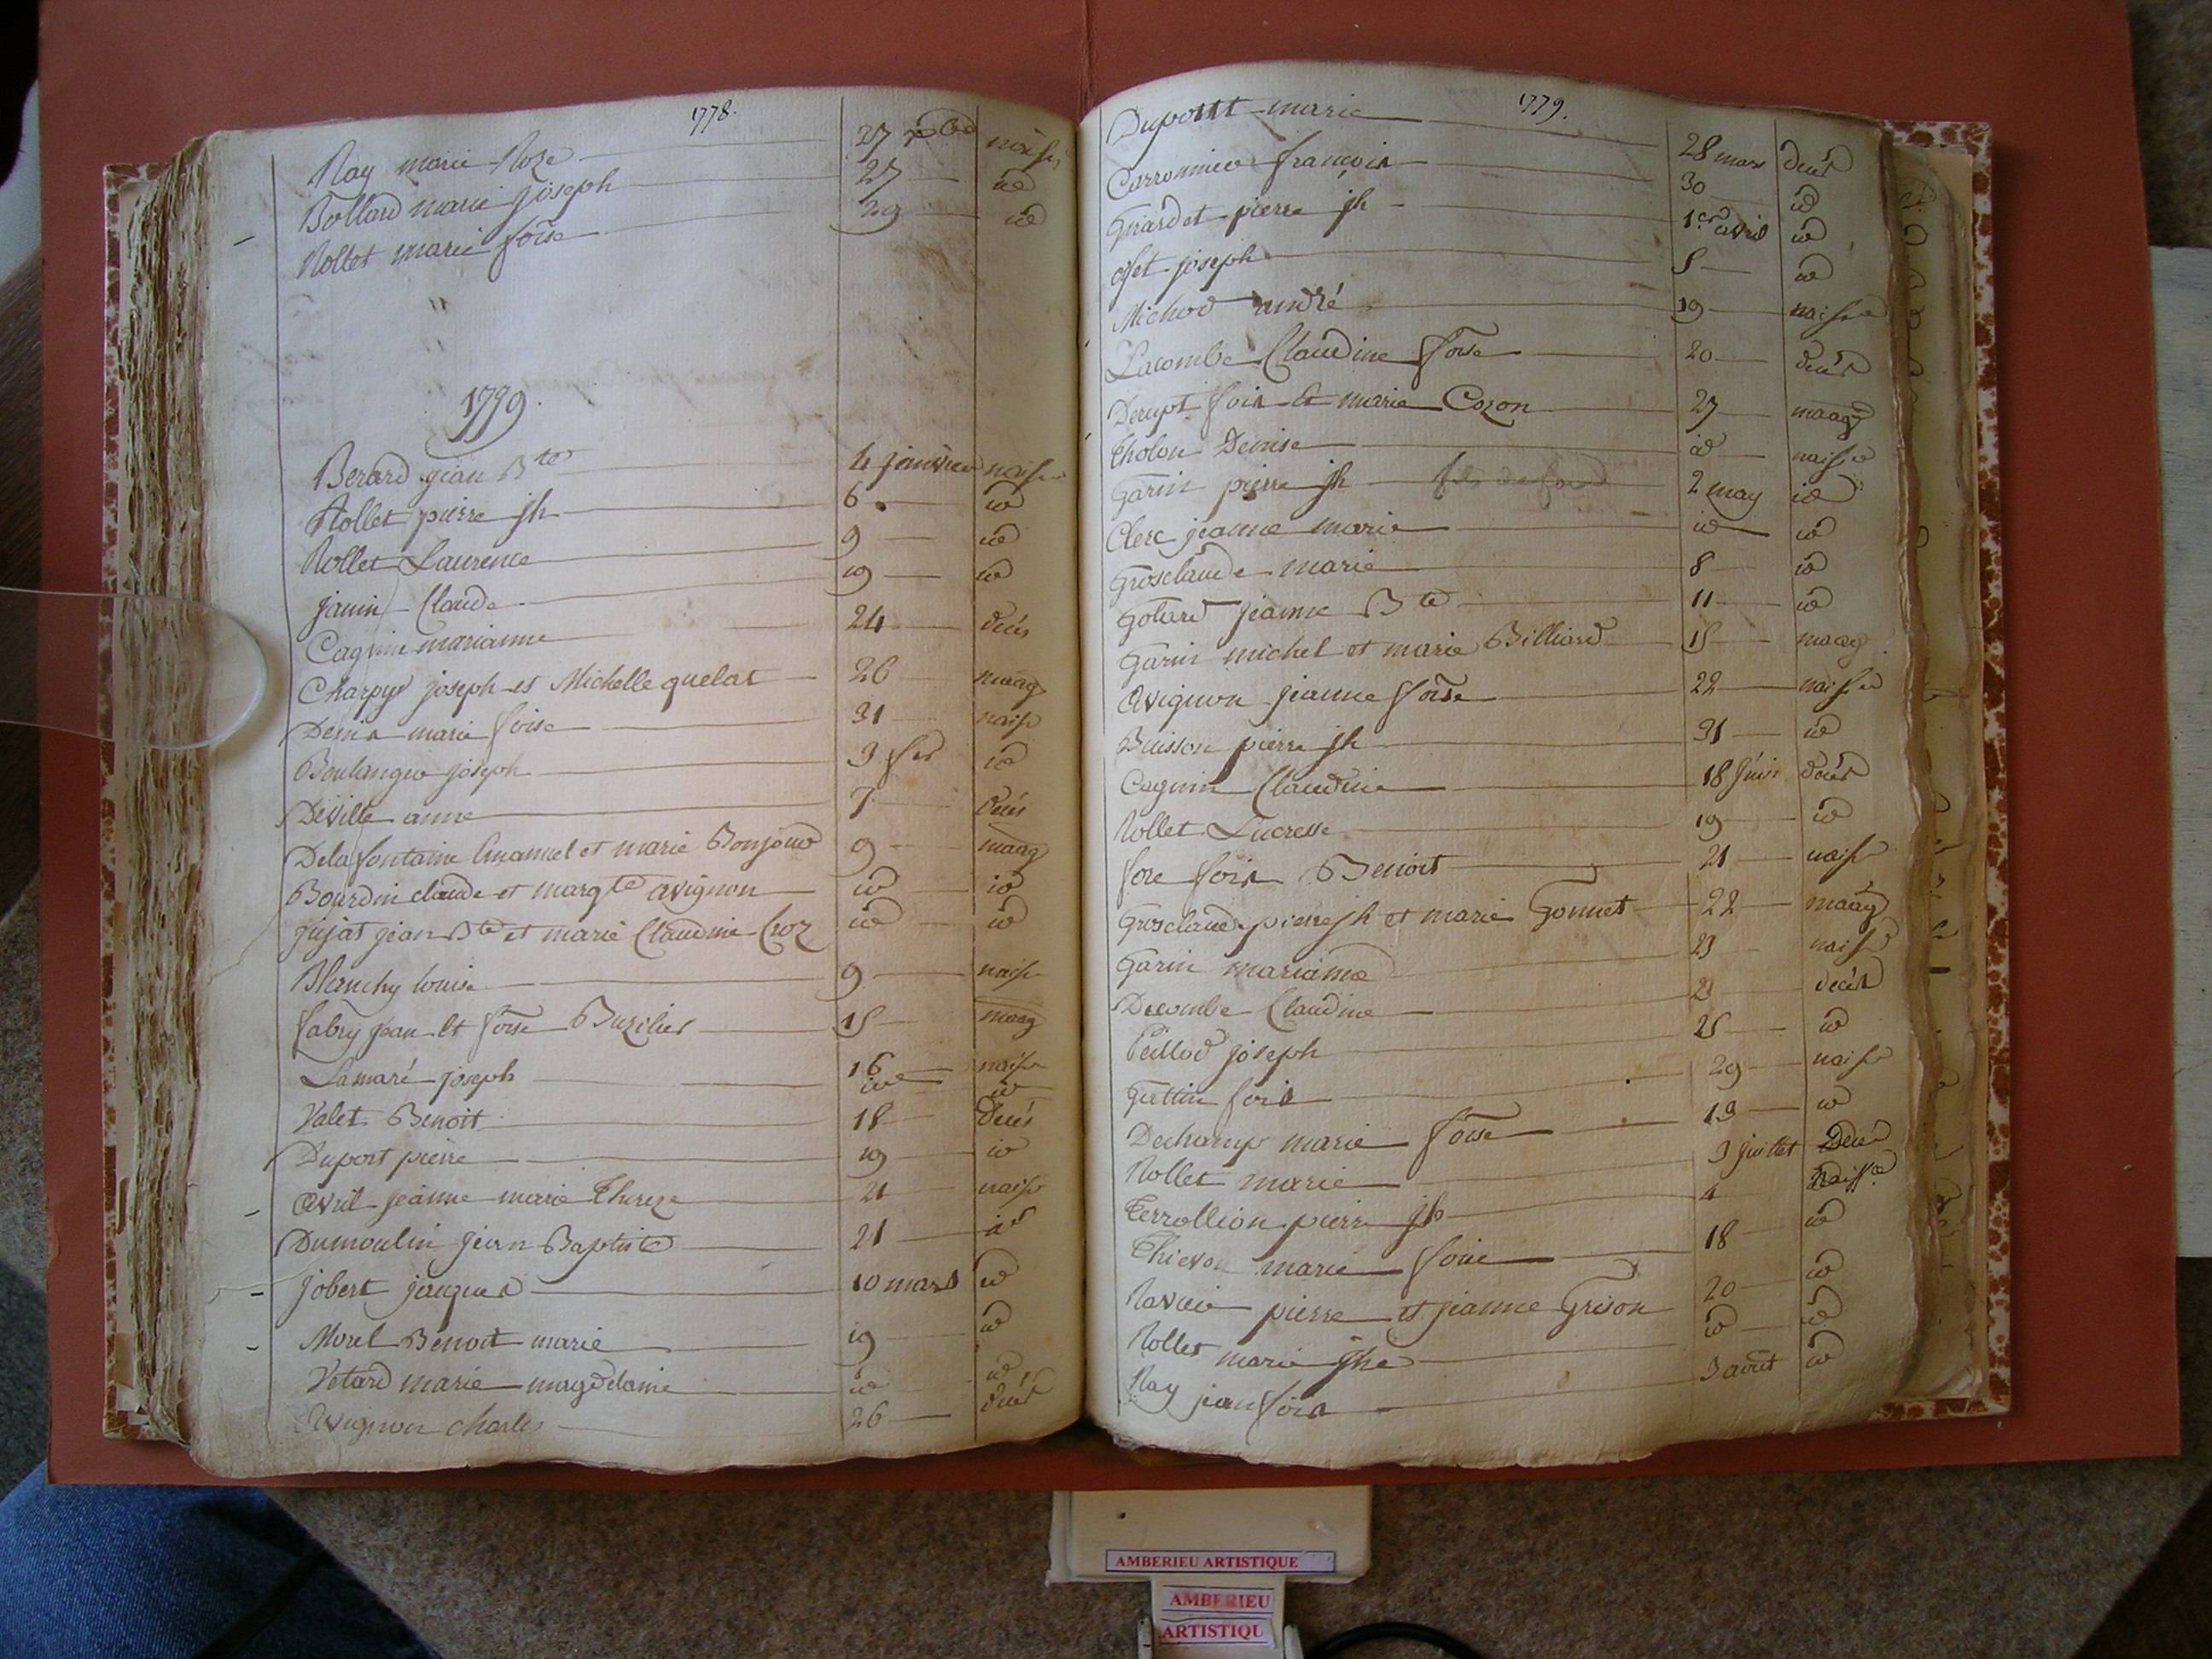 1778.
Ray marie Roze 27 xbre naiss
Bollard marie joseph 27 id
Rollet marie foise 29 id
1779.
Berard jean Bte 4 janvier naiss
Rollet pierre jh 6 id
Rollet Laurence 9 id
janin Claude 19 id
Cagnin marianne 24 deces
Charpy joseph et Michelle quelat 26 maag
Denis marie foise 31 naiss
Boulanger joseph 3 fer id
Deville anne 7 deces
Delafontaine Emanuel et marie Bonjour 9 maag
Bourdin claude et margte avignon id id
jujat jean Bte et marie Claudine Croz id id
Blanchy louise 9 naiss
fabry jean et foise Buzilier 15 maag
Lamaré joseph 16 naiss
id id
Valet Benoit 18 deces
Duport pierre 19 id
avril jeanne marie Thereze 21 naiss
Dumoulin jean Baptiste 21 id
jobert jacques 10 mars id
Morel Benoit marie 19 id
Vetard marie magdelaine id id
avignon charles 26 deces
1779.
Dupont marie 28 mars deces
Carronnier françois 30 id
Girardet pierre jh 1er avril id
joseph 5 id
Michod andré 19 naiss
Lacombe Claudine foise 20 deces
Derupt fois et marie Cozon 27 maag
Tholon Denise id naiss
Garin pierre jh 2 may id
Clerc jeanne marie id id
Grosclaude marie 8 id
Gotard jeanne Bte 11 id
Garin michel et marie Billiard 15 maag
avignon jeanne foise 22 naiss
Buisson pierre jh 31 id
Cagnin Claudine 18 juin deces
Rollet Lucresse 19 id
fore fois Benoit 21 naiss
Grosclaude pierre jh et marie Gonnet 22 maag
Garin marianne 23 naiss
Decombe Claudine 23 deces
Peillod joseph 25 id
Guttin fois 29 naiss
Dechamp marie foise 19 id
Rollet marie 3 juillet Deces
Terrollion pierre jh 4 Naisse
marie foise 18 id
pierre et jeanne Grison 20 id
Rollet marie jhe id id
Ray jean fois 3 aout id
AMBERIEU ARTISTIQUE
AMBERIEU
ARTISTIQU